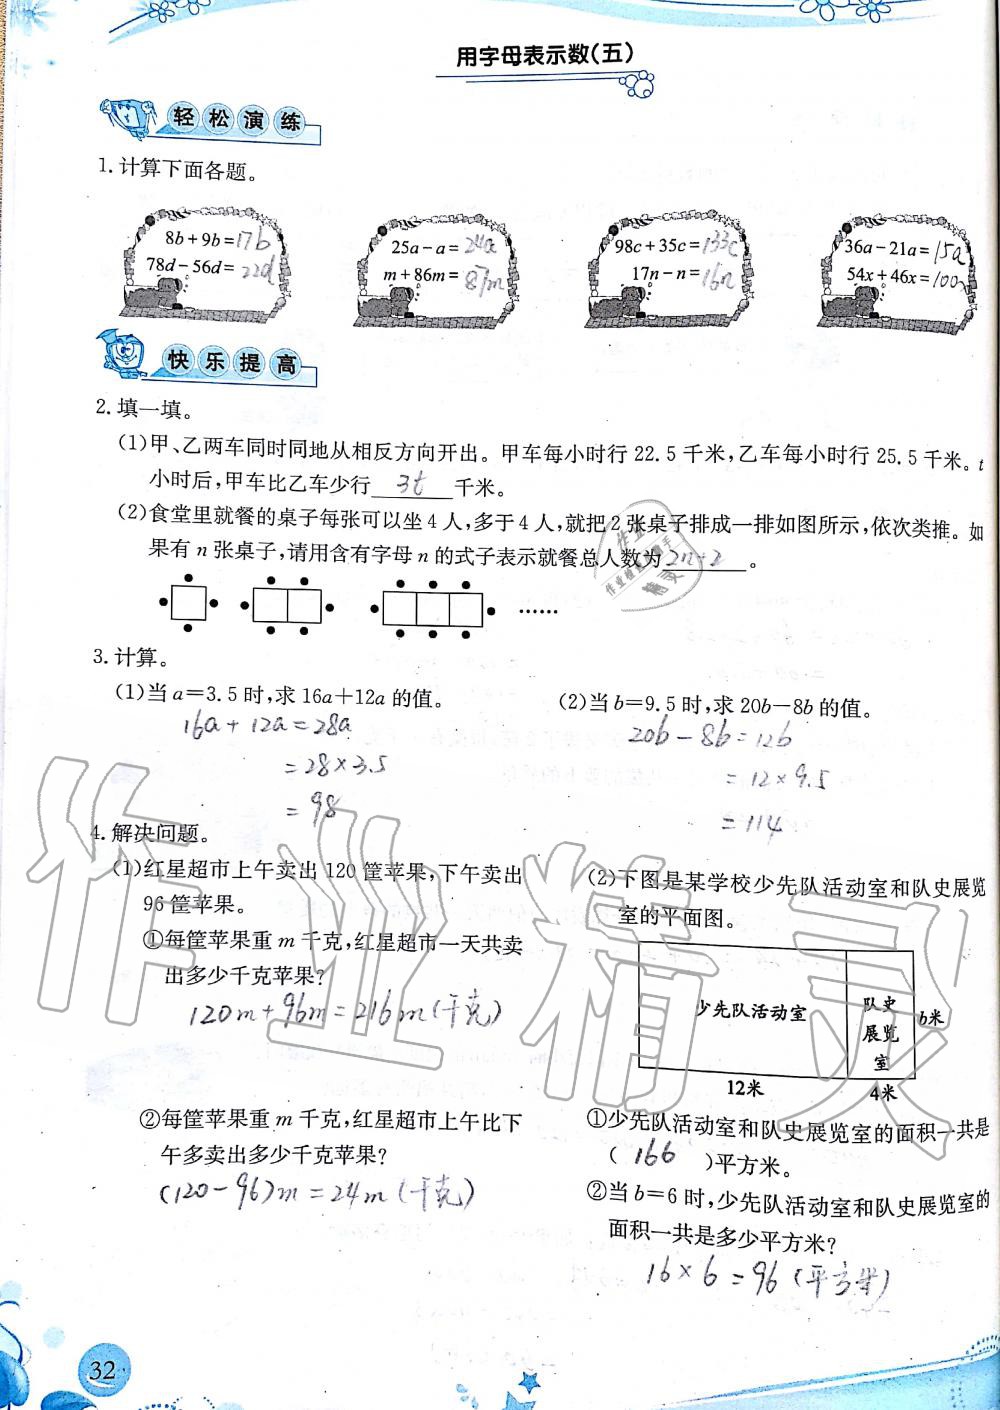 用字母表示数(五)
轻松演练
1.计算下面各题。
8b+9b=17b
78d-56d=22d
25a-a=24a
m+86m=87m
98c+35c=133c
17n-n=16n
36a-21a=15a
54x+46x=100x
快乐提高
2.填一填。
(1)甲、乙两车同时同地从相反方向开出。甲车每小时行22.5千米,乙车每小时行25.5千米。t
小时后,甲车比乙车少行 3t 千米。
(2)食堂里就餐的桌子每张可以坐4人,多于4人,就把2张桌子排成一排如图所示,依次类推。如
果有n张桌子,请用含有字母n的式子表示就餐总人数为 2n+2 。
……
3.计算。
(1)当a=3.5时,求16a+12a的值。
16a+12a=28a
=28×3.5
=98
(2)当b=9.5时,求20b-8b的值。
20b-8b=12b
=12×9.5
=114
4.解决问题。
(1)红星超市上午卖出120筐苹果,下午卖出
96筐苹果。
①每筐苹果重m千克,红星超市一天共卖
出多少千克苹果?
120m+96m=216m(千克)
②每筐苹果重m千克,红星超市上午比下
午多卖出多少千克苹果?
(120-96)m=24m(千克)
(2)下图是某学校少先队活动室和队史展览
室的平面图。
少先队活动室
队史
展览
室
b米
12米
4米
①少先队活动室和队史展览室的面积一共是
( 166 )平方米。
②当b=6时,少先队活动室和队史展览室的
面积一共是多少平方米?
16×6=96(平方米)
作业精灵
32